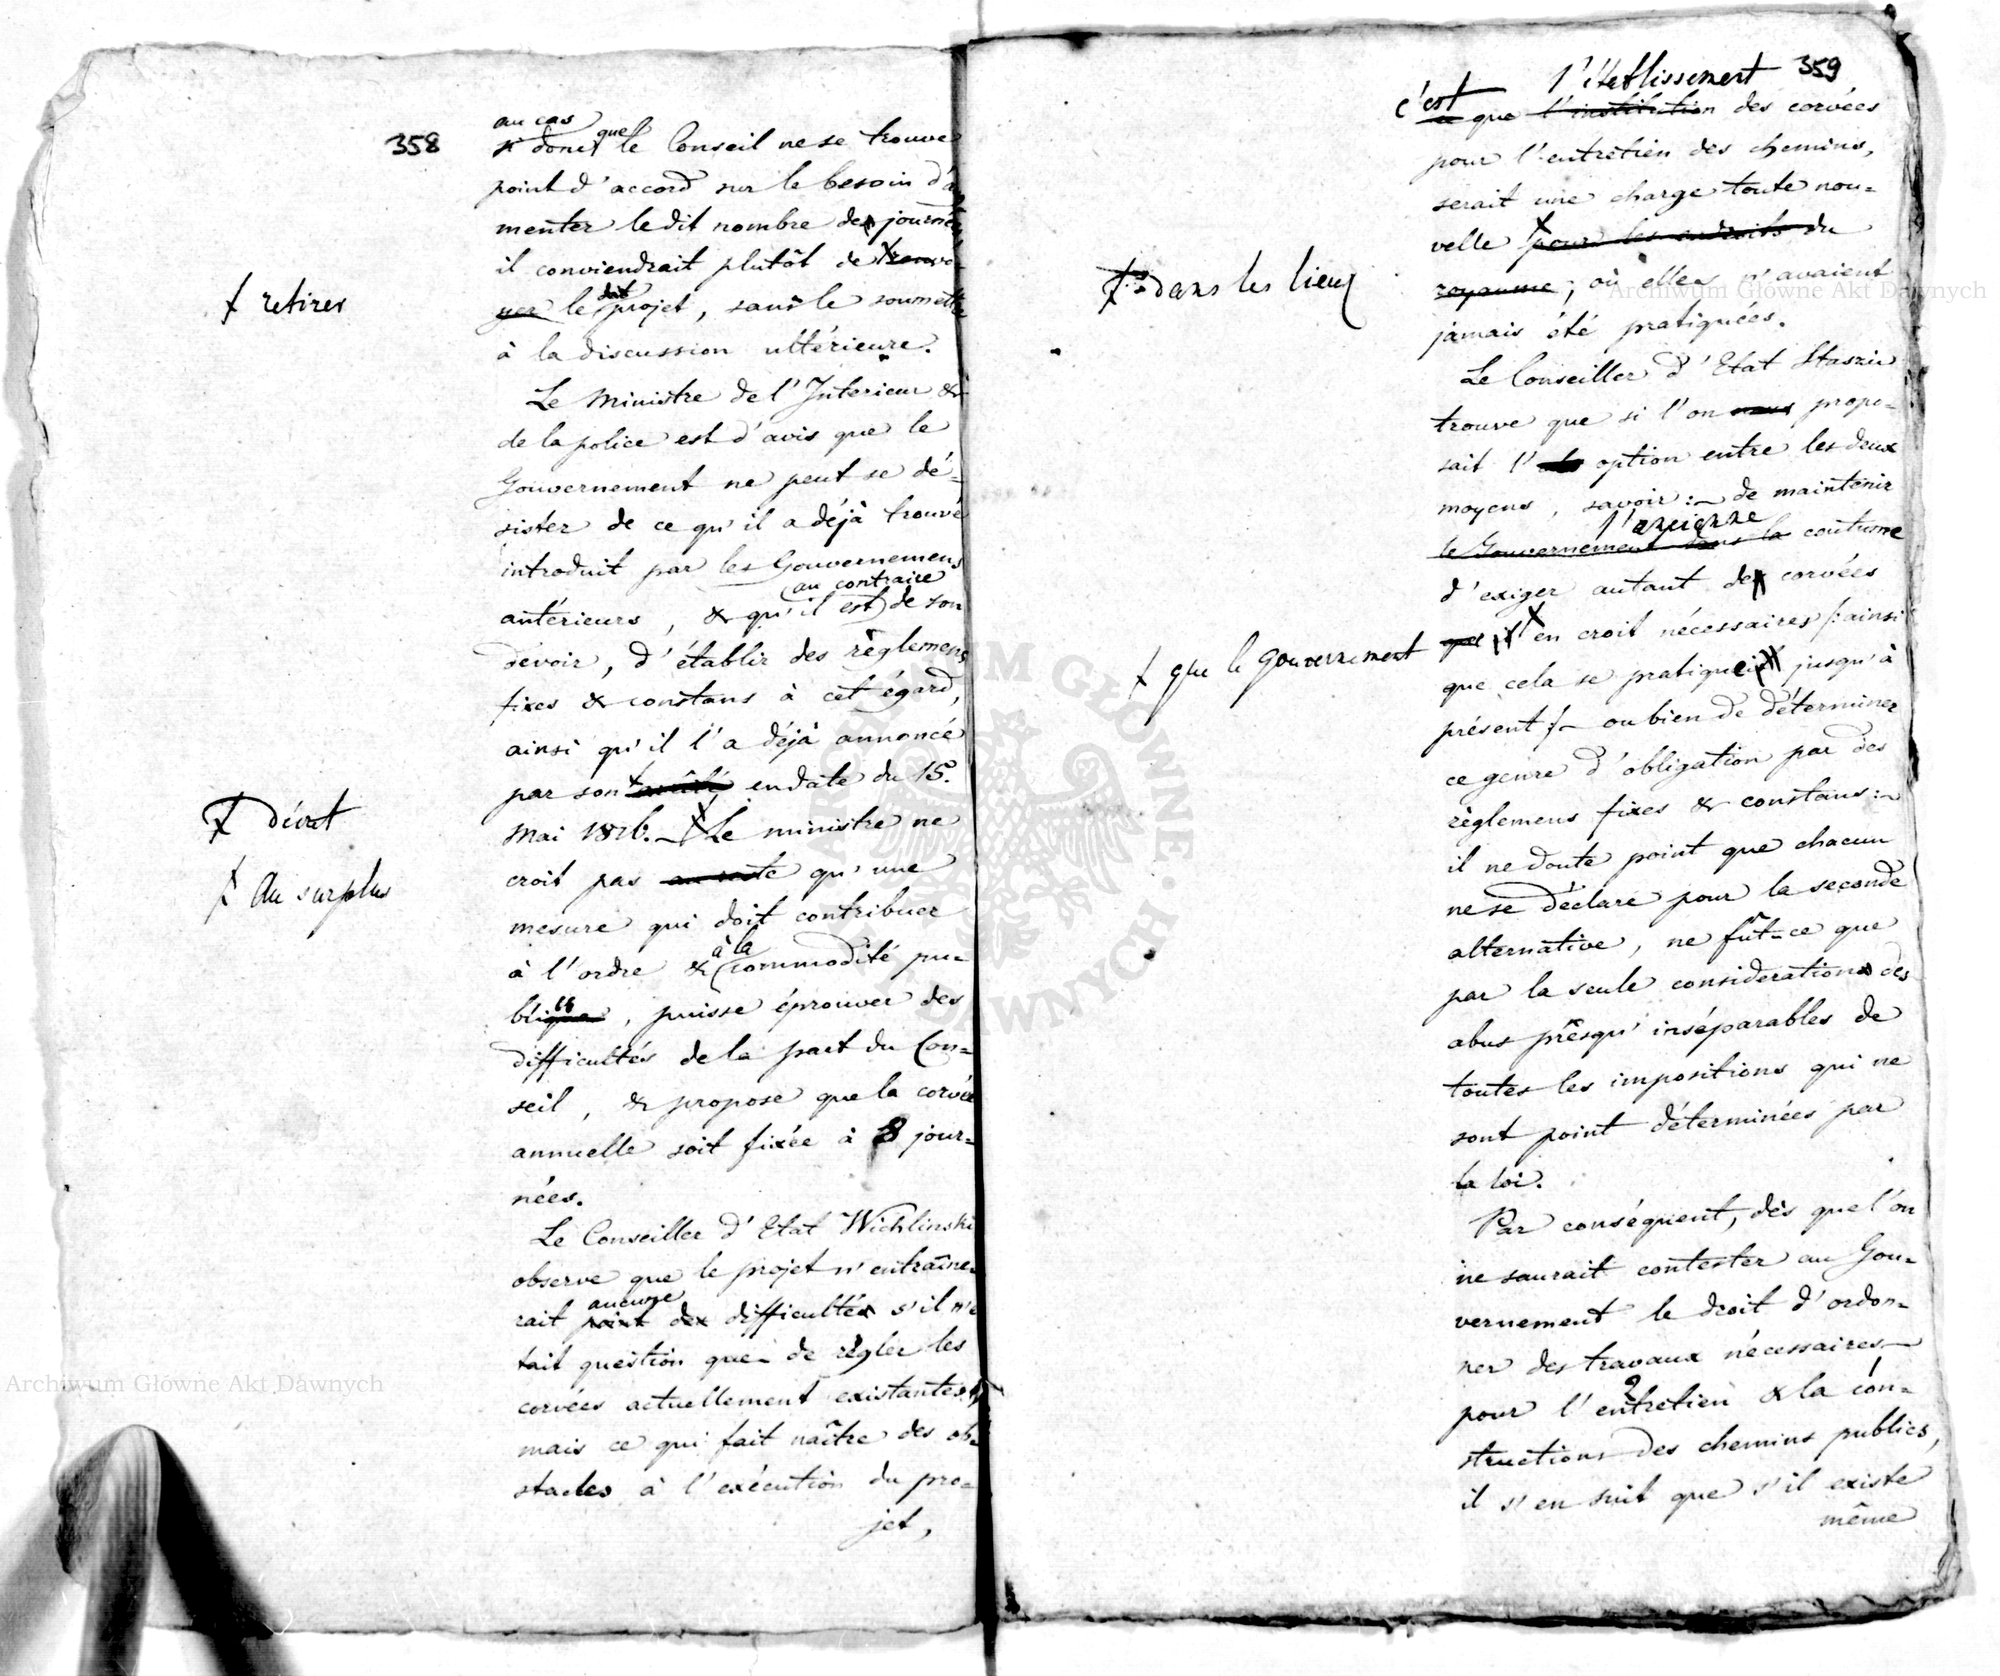 358
au cas
si donc que le Conseil ne se trouve
point d'accord sur le besoin d'a
menter le dit nombre de journées
il conviendrait plutôt de renvo-
retirer
yer le dit projet, sans le soumettre
à la discussion ultérieure.
Le Ministre de l'Intérieur &
de la police est d'avis que le
Gouvernement ne peut se dé-
sister de ce qu'il a déjà trouvé
introduit par les Gouvernemens
au contraire
antérieurs, & qu'il est de son
devoir, d'établir des règlemens
fixes & constans à cet égard,
ainsi qu'il l'a déjà annoncé
par son en date du 15.
Décret
Mai 1816. - Le ministre ne
Au surplus
croit pas au reste qu'une
mesure qui doit contribuer
à l'ordre & à la commodité pu-
blique, puisse éprouver des
difficultés de la part du Con-
seil, & propose que la corvée
annuelle soit fixée à 8 jour-
nées.
Le Conseiller d'Etat Wichlinski
observe que le projet n'entraîne-
aucune
rait point des difficultés s'il n'é
tait question que de règler les
corvées actuellement existantes,
mais ce qui fait naître des ob-
stacles à l'exécution du pro-
jet,
359
l'établissement
c'est
ce que l'institution des corvées
pour l'entretien des chemins,
serait une charge toute nou-
velle pour les endroits du
dans les lieux
royaume, où elles n'avaient
jamais été pratiquées.
Le Conseiller d'Etat Staszic
trouve que si l'on nous propo-
sait l' option entre les deux
moyens, savoir: de maintenir
l'ancienne
le Gouvernement dans la coutume
d'exiger autant de corvées
que le Gouvernement
qu'il en croit nécessaires /: ainsi
que cela se pratique jusqu'à
présent :/ - ou bien de déterminer
ce genre d'obligation par des
règlemens fixes & constans:
il ne doute point que chacun
ne se déclare pour la seconde
alternative, ne fût-ce que
par la seule considération des
abus presqu'inséparables de
toutes les impositions qui ne
sont point déterminées par
la loi.
Par conséquent, dès que l'on
ne saurait contester au Gou-
vernement le droit d'ordon-
ner des travaux nécessaires
pour l'entretien & la con-
struction des chemins publics,
il s'en suit que s'il existe
même
Archiwum Główne Akt Dawnych
Archiwum Główne Akt Dawnych
ARCHIWUM GŁÓWNE AKT DAWNYCH